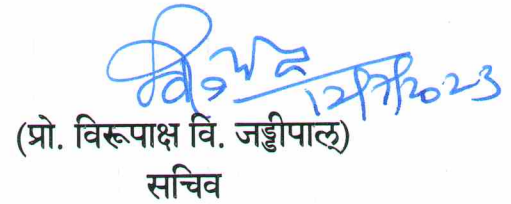 12/7/2023
(प्रो. विरूपाक्ष वि. जड्डीपाल्)
सचिव